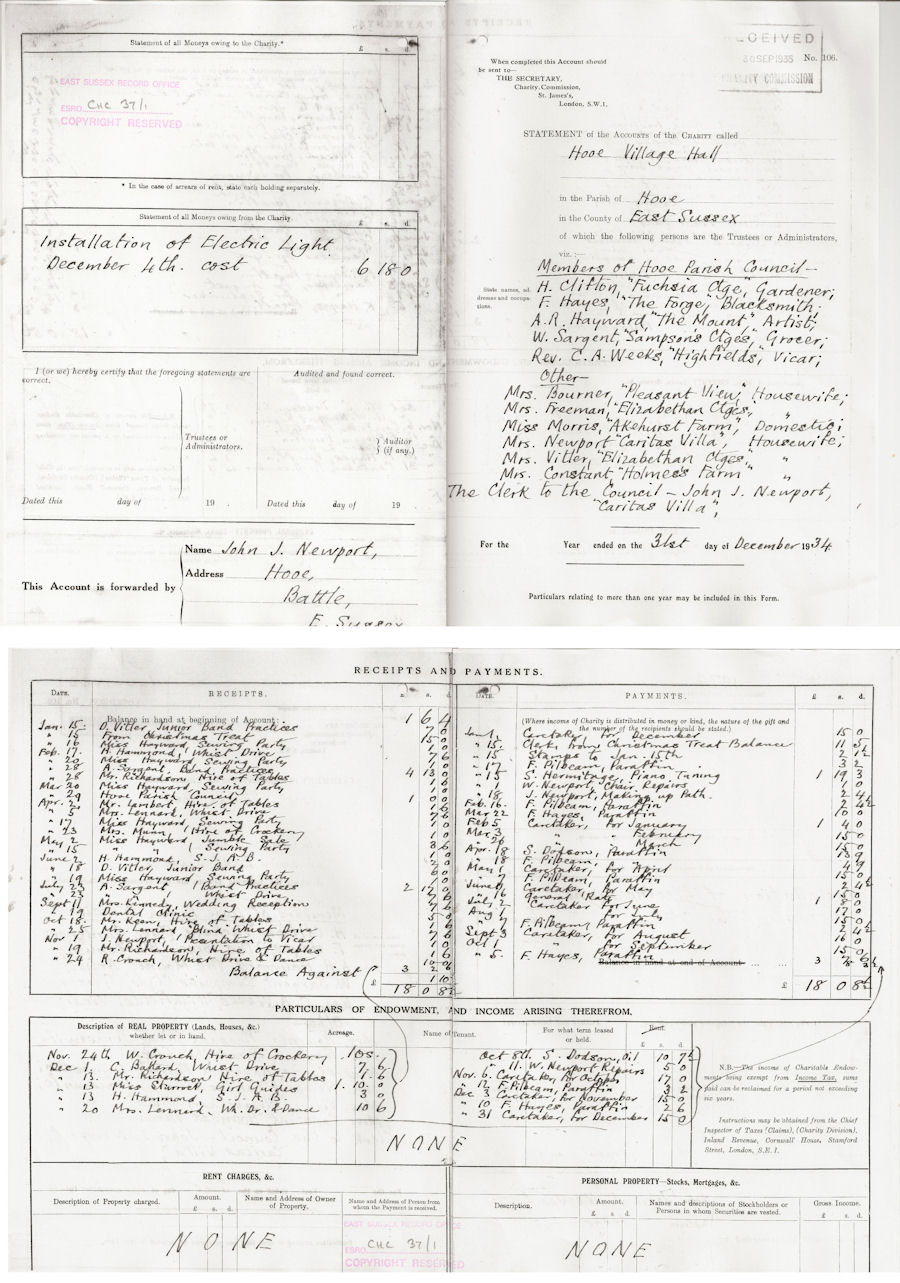 Statement of all Moneys owing to the Charity.*
£ s. d.
EAST SUSSEX RECORD OFFICE
ESRO CHC 37/1
COPYRIGHT RESERVED
* In the case of arrears of rent, state each holding separately.
Statement of all Moneys owing from the Charity.
£ s. d.
Installation of Electric Light.
December 4th. cost 6 18 0
I (or we) hereby certify that the foregoing statements are correct.
Audited and found correct.
Trustees or Administrators.
Auditor (if any.)
Dated this day of 19 .
Dated this day of 19 .
This Account is forwarded by
Name John J. Newport,
Address Hooe,
Battle,
E. Sussex
RECEIVED
30 SEP 1935
CHARITY COMMISSION
No. 106.
When completed this Account should
be sent to—
THE SECRETARY,
Charity Commission,
St. James's,
London, S.W.1.
STATEMENT of the ACCOUNTS of the CHARITY called
Hooe Village Hall
in the Parish of Hooe
in the County of East Sussex
of which the following persons are the Trustees or Administrators,
viz. :—
State names, addresses and occupations.
Members of Hooe Parish Council—
H. Clifton, "Fuchsia Ctge", Gardener;
F. Hayes, "The Forge", Blacksmith;
A.R. Hayward, "The Mount" Artist;
W. Sargent, "Sampson's Ctges", Grocer;
Rev. C. A. Weeks, "Highfields", Vicar;
Other—
Mrs. Bourner, "Pleasant View", Housewife;
Mrs. Freeman, "Elizabethan Ctges, "
Miss Morris, "Akehurst Farm", Domestic;
Mrs. Newport "Caritas Villa", Housewife;
Mrs. Vitler, "Elizabethan Ctges," "
Mrs. Constant, "Holmes's Farm "
The Clerk to the Council — John J. Newport,
"Caritas Villa",
For the Year ended on the 31st day of December 1934
Particulars relating to more than one year may be included in this Form.
RECEIPTS AND PAYMENTS.
DATE. RECEIPTS. £ s. d.
Balance in hand at beginning of Account: 1 6 4
Jan. 15 D. Vitler Junior Band Practices
" 15 From Christmas Treat
" 16 Miss Hayward, Sewing Party
Feb. 17 H. Hammond, Whist Drive
" 20 Miss Hayward, Sewing Party
" 28 A. Sargent, Band Practices
" 28 Mr. Richardson, Hire of Tables
Mar 20 Miss Hayward, Sewing Party
" 29 Hooe Parish Council
Apr. 2 Mr. Lambert, Hire of Tables
" 5 Mrs. Lennard, Whist Drive
" 17 Miss Hayward Sewing Party
" 23 Mrs. Munn, Hire of Crockery
May 2 Miss Hayward Jumble Sale
" 15 " Sewing Party
June 2 H. Hammond, S.J.A.B.
" 18 D. Vitler, Junior Band
" 19 Miss Hayward Sewing Party
July 23 A. Sargent, Band Practices
" 23 " Whist Drive
Sept 11 Mrs. Kennedy, Wedding Reception
" 19 Dental Clinic
Oct 18 Mr. Keen, Hire of Tables
" 25 Mrs. Lennard, "Blind" Whist Drive
Nov 1 J. Newport, Presentation to Vicar
" 19 Mr. Richardson, Hire of Tables
" 24 R. Crouch, Whist Drive & Dance
Balance Against 3
£ 18 0 8½
DATE. PAYMENTS. £ s. d.
(Where income of Charity is distributed in money or kind, the nature of the gift and
the number of the recipients should be stated.)
Jan. 1 Caretaker, for December 15 0
" 15 Clerk, from Christmas Treat Balance
" 15 Stamps to Jan. 15th
" 17 F. Pilbeam, Paraffin 3 2
" 15 S. Hermitage, Piano Tuning
" 1 W. Newport, Chair Repairs
" 18 J. Newport, Making up Path
Feb. 16 F. Pilbeam, Paraffin
Mar 22 F. Hayes, Paraffin
Feb 5 Caretaker, for January
Mar 3 " February
" 26 " March
Apr. 18 S. Dodson, Paraffin
" 18 F. Pilbeam,
May 1 Caretaker, for April
" 7 F. Pilbeam, Paraffin
June Caretaker, for May
" 16 General Rate
July 2 Caretaker for June
Aug 1 " for July
" 7 F. Pilbeam, Paraffin
Sept 3 Caretaker, for August
Oct 1 " for September
" 5. F. Hayes, Paraffin
Balance in hand at end of Account ... ... 3
£ 18 0 8½
PARTICULARS OF ENDOWMENT, AND INCOME ARISING THEREFROM.
Description of REAL PROPERTY (Lands, Houses, &c.)
whether let or in hand.
Acreage.
Name of Tenant.
For what term leased
or held.
Rent.
£ s. d.
Nov. 24th W. Crouch, Hire of Crockery .10s.
Dec 1. C. Ballard, Whist Drive 7. 6
" 13. Mr. Richardson Hire of Tables 1. 6
" 13 Miss Sturrock, Girl Guides 1. 10. 0
" 13 H. Hammond, S.J.A.B. 3 0
" 20 Mrs. Lennard, Wh. Dr. & Dance 10 6
Oct 8th. S. Dodson, Oil 10 7½
" 11. W. Newport Repairs 5 0
Nov. 6. Caretaker, for October 17 0
" 12 F. Pilbeam, Paraffin 3 2
Dec 3 Caretaker, for November 15 0
" 10 F. Hayes, Paraffin 2 6
" 31 Caretaker, for December 15 0
NONE
N.B.—The income of Charitable Endowments being exempt from Income Tax, sums
paid can be reclaimed for a period not exceeding
six years.
Instructions may be obtained from the Chief
Inspector of Taxes (Claims), (Charity Division),
Inland Revenue, Cornwall House, Stamford
Street, London, S.E.1.
RENT CHARGES, &c.
Description of Property charged.
Amount.
£ s. d.
Name and Address of Owner
of Property.
Name and Address of Person from
whom the Payment is received.
NONE
EAST SUSSEX RECORD OFFICE
ESRO CHC 37/1
COPYRIGHT RESERVED
PERSONAL PROPERTY—Stocks, Mortgages, &c.
Description.
Amount.
£ s. d.
Names and descriptions of Stockholders or
Persons in whom Securities are vested.
Gross Income.
£ s. d.
NONE